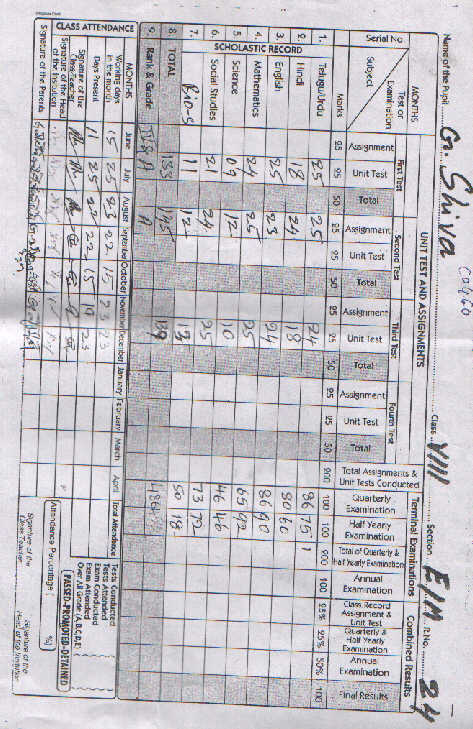 Name of the Pupil G. Shiva Class VIII Section E/M R.No. 24
MONTHS UNIT TEST AND ASSIGNMENTS Terminal Examinations Combined Results
Serial No
Subject
Test or Examination
First Test Second Test Third Test Fourth Test
Assignment Unit Test Total Assignment Unit Test Total Assignment Unit Test Total Assignment Unit Test Total
Total Assignments & Unit Tests Conducted
Quarterly Examination
Half Yearly Examination
Total of Quarterly & Half Yearly Examination
Annual Examination
Class Record Assignment & Unit Test
Quarterly & Half Yearly Examination
Annual Examination
Final Results
Marks 25 25 50 25 25 50 25 25 50 25 25 50 200 100 100 200 100 25% 25% 50% 100
SCHOLASTIC RECORD
1. Telugu/Urdu 25 25 24 86 75
2. Hindi 18 24 18 80 60
3. English 25 23 24 86 60
4. Mathematics 24 25 25 65
5. Science 09 12 10 46 46
6. Social Studies 21 24 25 73 72
7. Bio-S 11 12 13 50 18
8. TOTAL 133 145
9. Rank & Grade A A
CLASS ATTENDANCE
MONTHS June July August September October November December January February March April Total Attendance
Working days in the month 15 25 23 22 15 23 23
Days Present 11 25 22 22 15 19 23
Signature of the Class-Teacher
Signature of the Head of the Institution
Signature of the Parents
Tests Conducted
Tests Attended
Exam Conducted
Exam Attended
Over All Grade (A,B,C,D,E)
(PASSED-PROMOTED-DETAINED)
Attendance Percentage ( %)
Signature of the Class Teacher
Signature of the Head of the Institution